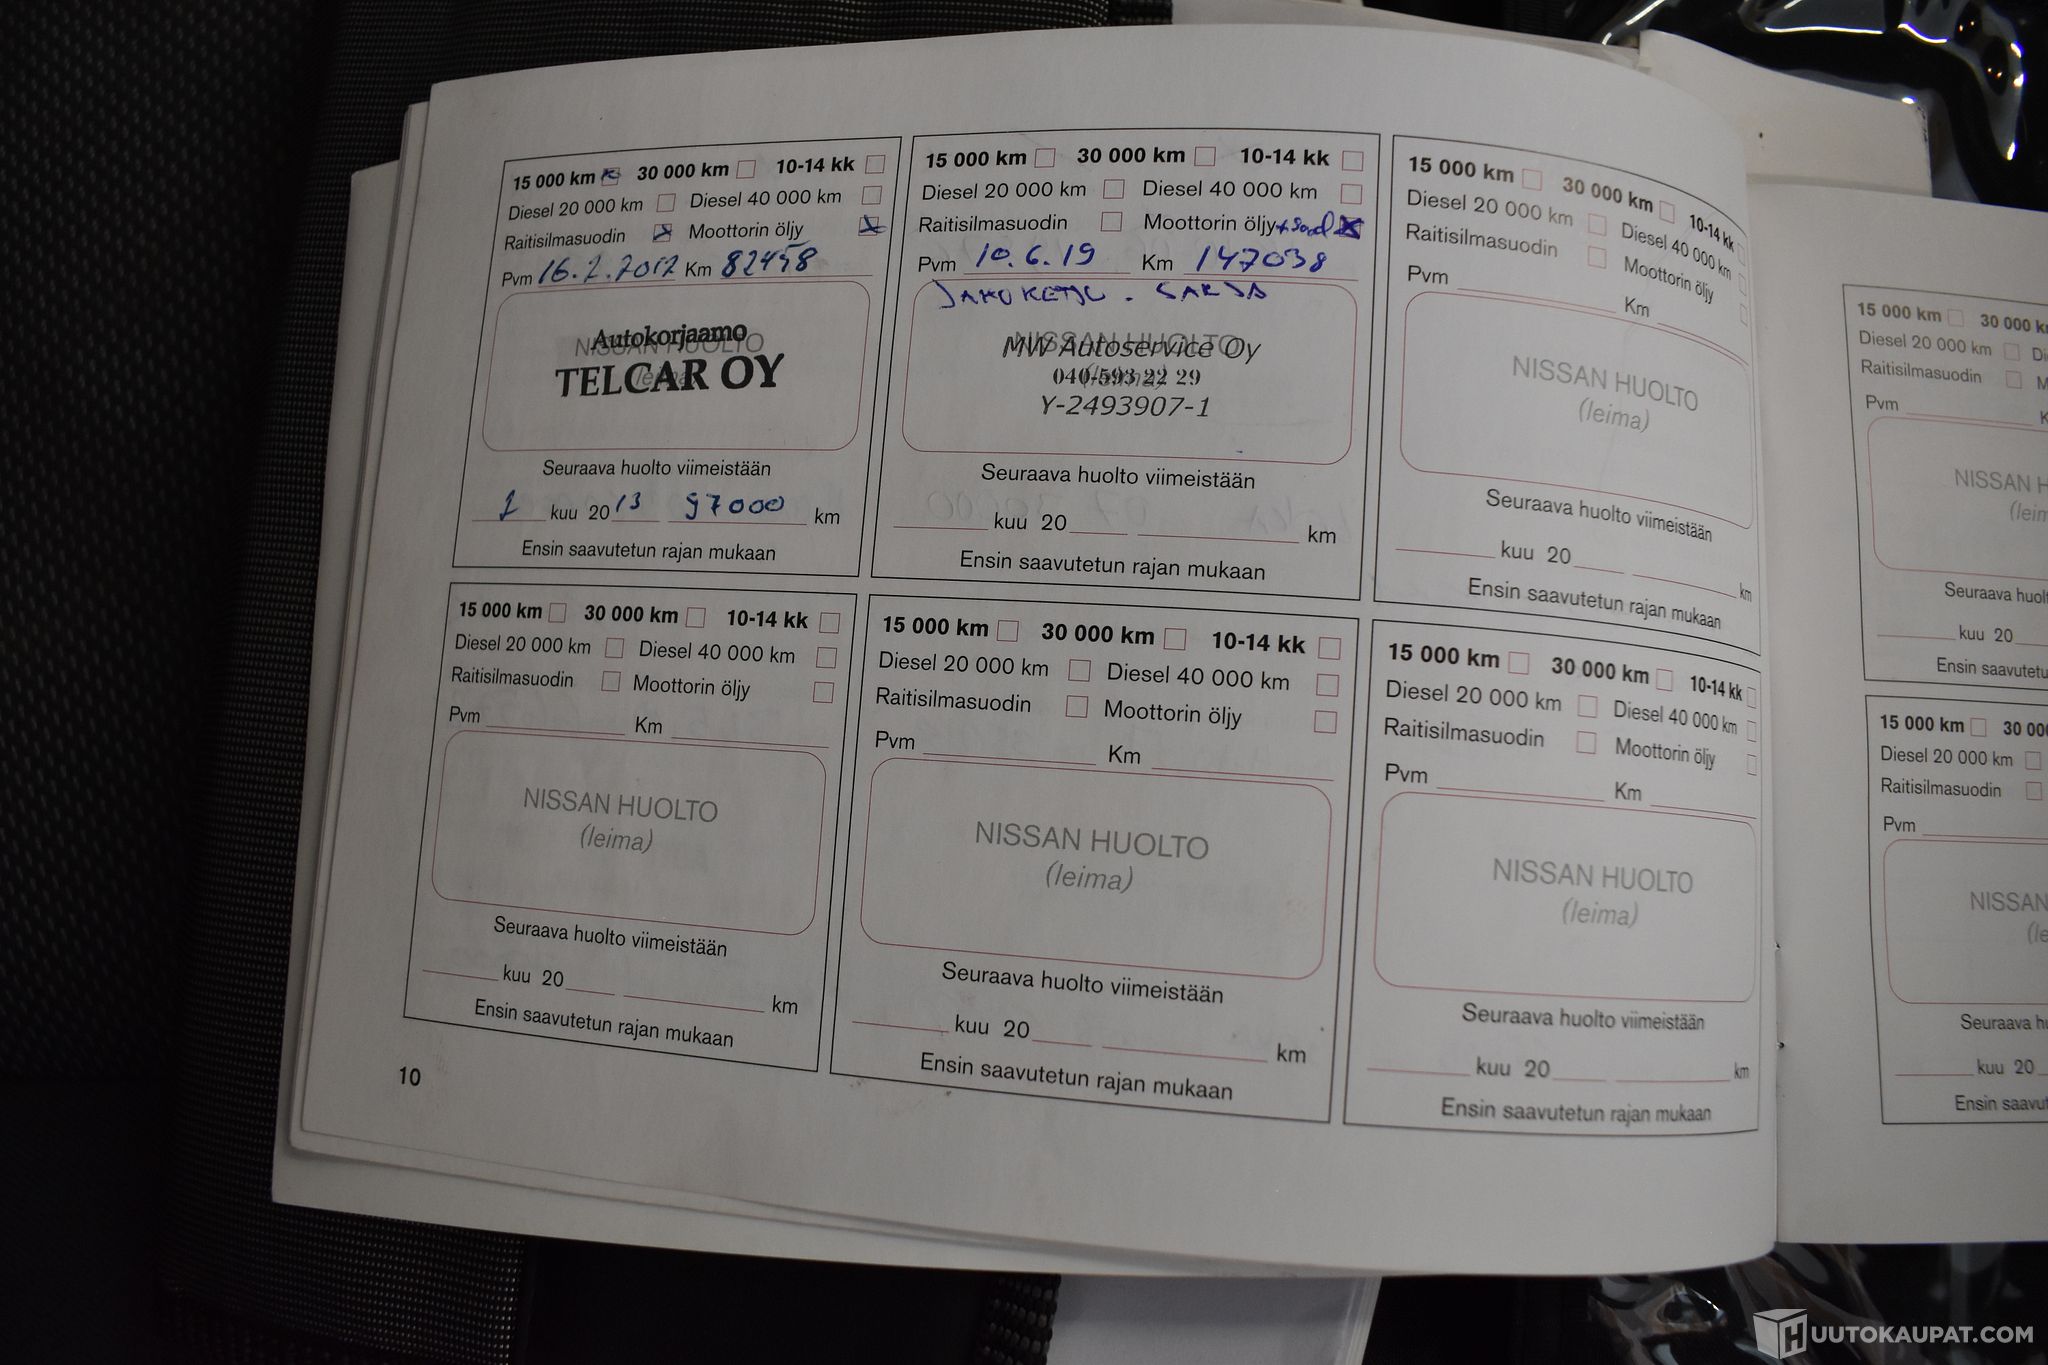 15 000 km 30 000 km 10-14 kk
Diesel 20 000 km Diesel 40 000 km
Raitisilmasuodin Moottorin öljy
Pvm 16.2.2012 Km 82458
NISSAN HUOLTO
Autokorjaamo
TELCAR OY
Seuraava huolto viimeistään
2 kuu 2013 97000 km
Ensin saavutetun rajan mukaan
15 000 km 30 000 km 10-14 kk
Diesel 20 000 km Diesel 40 000 km
Raitisilmasuodin Moottorin öljy
Pvm 10.6.19 Km 147038
JAKOKETJU. SARJA
NISSAN HUOLTO
MW Autoservice Oy
040-593 22 29
Y-2493907-1
Seuraava huolto viimeistään
kuu 20 km
Ensin saavutetun rajan mukaan
15 000 km 30 000 km 10-14 kk
Diesel 20 000 km Diesel 40 000 km
Raitisilmasuodin Moottorin öljy
Pvm Km
NISSAN HUOLTO
(leima)
Seuraava huolto viimeistään
kuu 20 km
Ensin saavutetun rajan mukaan
15 000 km 30 000 km 10-14 kk
Diesel 20 000 km Diesel 40 000 km
Raitisilmasuodin Moottorin öljy
Pvm Km
NISSAN HUOLTO
(leima)
Seuraava huolto viimeistään
kuu 20 km
Ensin saavutetun rajan mukaan
15 000 km 30 000 km 10-14 kk
Diesel 20 000 km Diesel 40 000 km
Raitisilmasuodin Moottorin öljy
Pvm Km
NISSAN HUOLTO
(leima)
Seuraava huolto viimeistään
kuu 20 km
Ensin saavutetun rajan mukaan
15 000 km 30 000 km 10-14 kk
Diesel 20 000 km Diesel 40 000 km
Raitisilmasuodin Moottorin öljy
Pvm Km
NISSAN HUOLTO
(leima)
Seuraava huolto viimeistään
kuu 20 km
Ensin saavutetun rajan mukaan
10
15 000 km 30 000
Diesel 20 000 km
Raitisilmasuodin
Pvm
NISSAN
Seuraava
kuu 20
Ensin saavutetu
15 000 km 30 00
Diesel 20 000 km
Raitisilmasuodin
Pvm
NISSAN
Seuraava
kuu 20
Ensin
HUUTOKAUPAT.COM